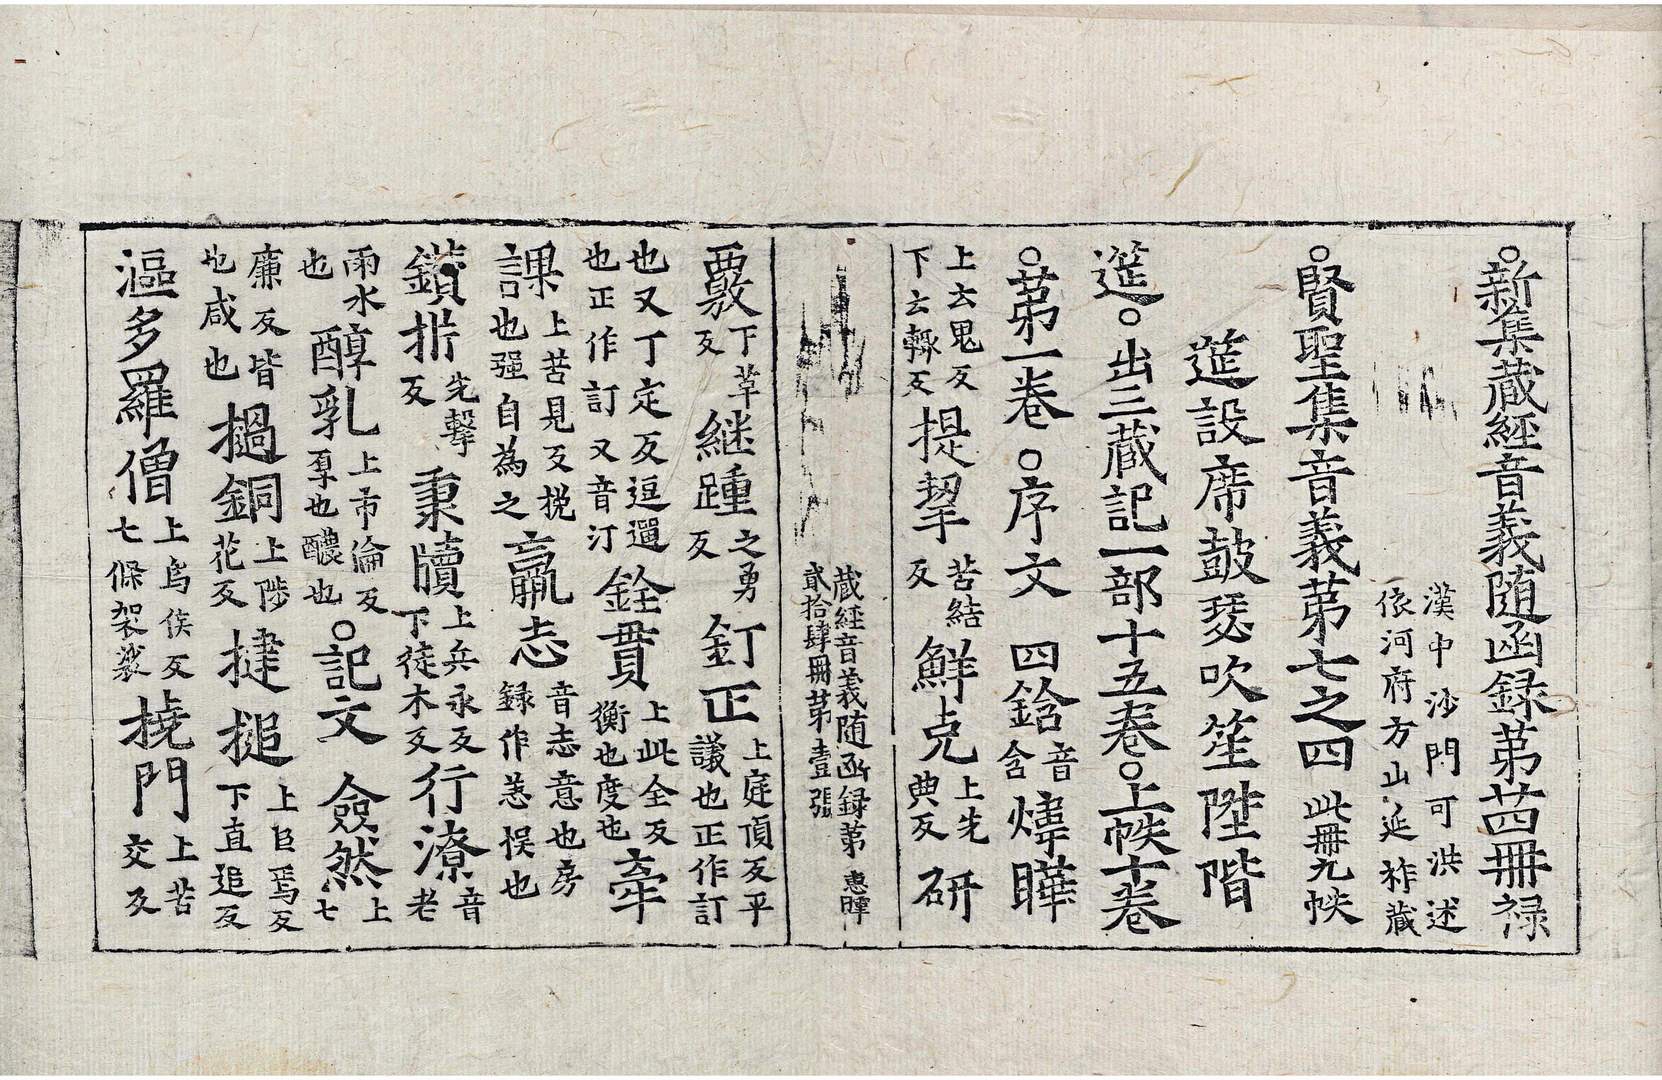 ○新集蔵經音義随函録第廿四冊禄
漢中沙門可洪述
依河府方山延祚蔵
○賢聖集音義苐七之四此冊九帙
筵設席鼓瑟吹笙陞階
筵○出三蔵記一部十五卷○上帙十卷
○苐一卷○序文四鋡音含煒曄
上云鬼反下云輙反提挈苦結反鮮㐵上先典反研
蔵經音義随函録苐
貳拾肆冊苐壹張 惠暉
覈下革反継踵之勇反釘正上庭頂反平議也正作訂
也又丁定反逗遛也正作訂又音汀銓貫上此全反衡也度也牽
課上苦見反挽也強自為之羸志音志意也房録作恙悮也
鑽㭊先擊反秉牘上兵永反下徒木反行潦音老
雨水也醇乳上市倫反厚也醲也○記文僉然上七
廉反皆也咸也撾銅上陟花反揵搥上巨焉反下直追反
漚多羅僧上烏侯反七條袈裟撓門上苦交反